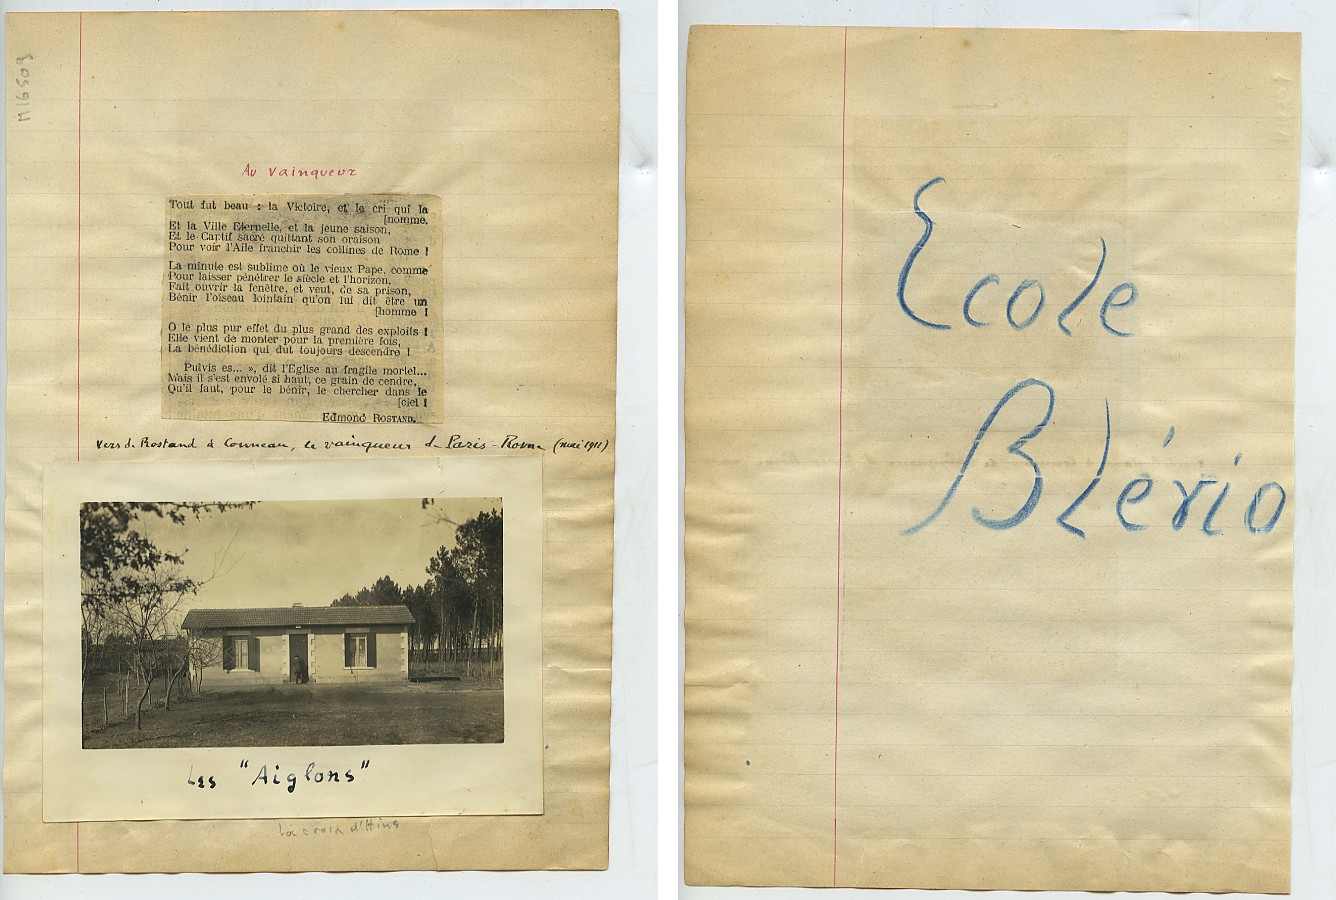 M16509
Au vainqueur
Tout fut beau : la Victoire, et le cri qui la
[nomme.
Et la Ville Eternelle, et la jeune saison,
Et le Captif sacré quittant son oraison
Pour voir l'Aile franchir les collines de Rome !
La minute est sublime où le vieux Pape, comme
Pour laisser pénétrer le siècle et l'horizon,
Fait ouvrir la fenêtre, et veut, de sa prison,
Bénir l'oiseau lointain qu'on lui dit être un
[homme !
O le plus pur effet du plus grand des exploits !
Elle vient de monter pour la première fois,
La bénédiction qui dut toujours descendre !
Pulvis es... », dit l'Eglise au fragile mortel...
Mais il s'est envolé si haut, ce grain de cendre,
Qu'il faut, pour le bénir, le chercher dans le
[ciel !
Edmond ROSTAND.
Vers de Rostand à Conneau, le vainqueur de Paris-Rome (mai 1911)
Les "Aiglons"
La croix d'Hins
Ecole
Blério